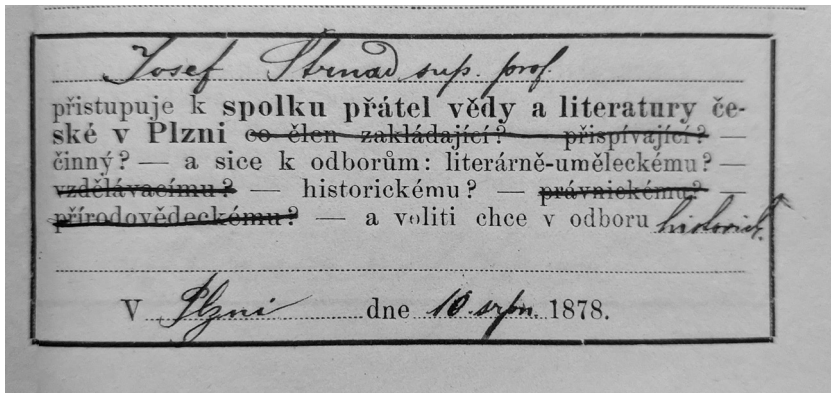 Josef Strnad sup. prof.
přistupuje k spolku přátel vědy a literatury če-
ské v Plzni co člen zakládající? přispívající? —
činný? — a sice k odborům: literárně-uměleckému? —
vzdělávacímu? — historickému? — právnickému? —
přírodovědeckému? — a voliti chce v odboru historick.
V Plzni dne 10 srpn. 1878.